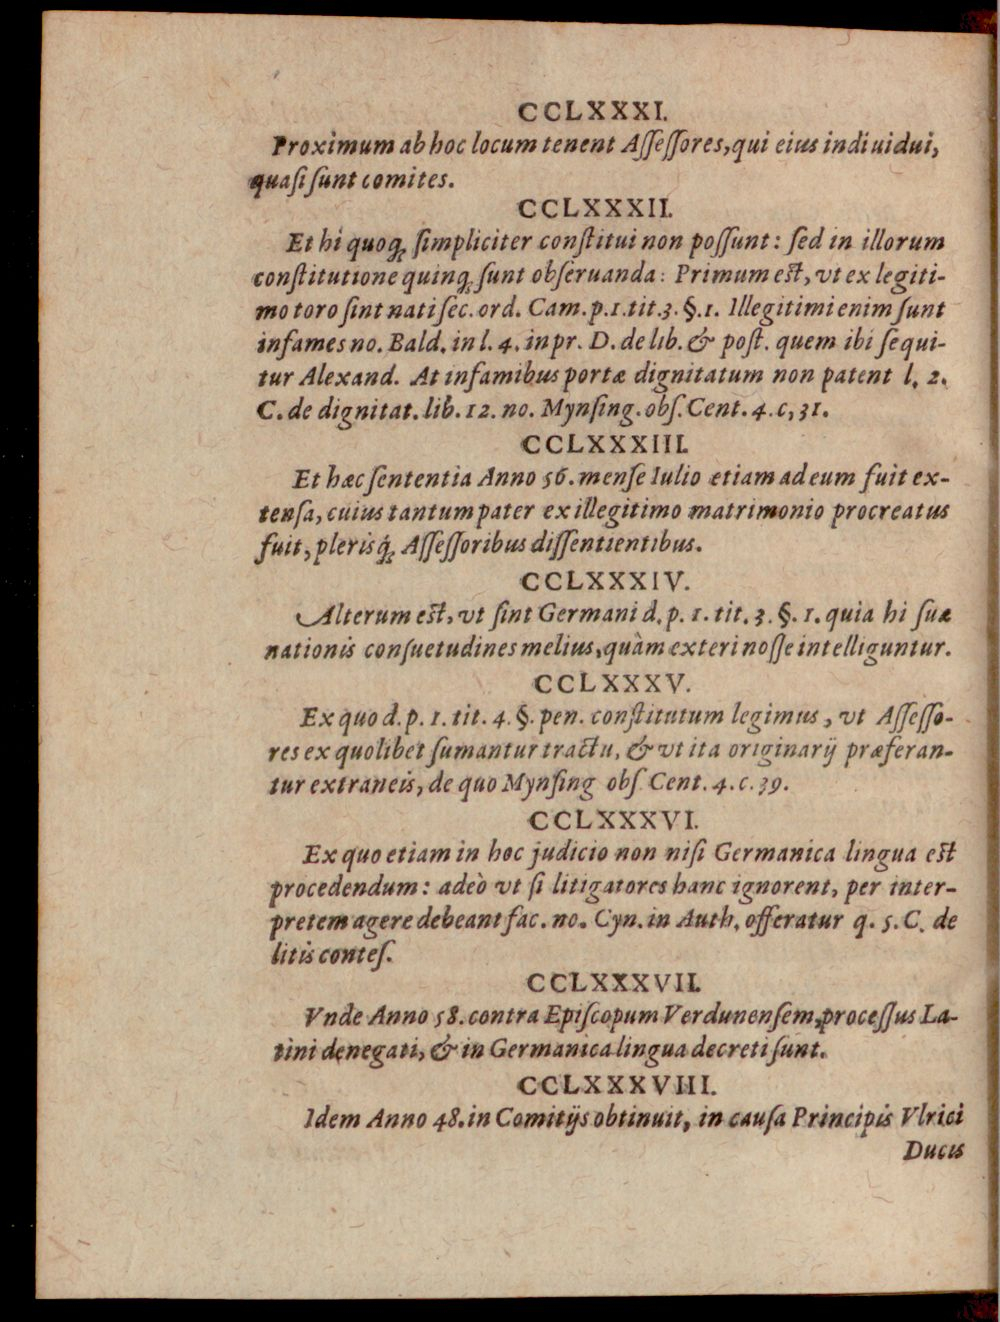 CCLXXXI.
Proximum ab hoc locum tenent Aſſeſſores, qui eius indiuidui,
quaſi ſunt comites.
CCLXXXII.
Et hi quoq; ſimpliciter conſtitui non poſſunt: ſed in illorum
conſtitutione quinq; ſunt obſeruanda: Primum eſt, vt ex legiti-
mo toro ſint nati ſec. ord. Cam. p. 1. tit. 3. §. 1. Illegitimi enim ſunt
infames no. Bald. in l. 4. in pr. D. de lib. & poſt. quem ibi ſequi-
tur Alexand. At infamibus portæ dignitatum non patent l. 2.
C. de dignitat. lib. 12. no. Mynſing. obſ. Cent. 4. c, 31.
CCLXXXIII.
Et hæc ſententia Anno 56. menſe Iulio etiam ad eum fuit ex-
tenſa, cuius tantum pater ex illegitimo matrimonio procreatus
fuit, plerisq́; Aſſeſſoribus diſſentientibus.
CCLXXXIV.
Alterum eſt, vt ſint Germani d. p. 1. tit. 3. §. 1. quia hi ſuæ
nationis conſuetudines melius, quàm exteri noſſe intelliguntur.
CCLXXXV.
Ex quo d. p. 1. tit. 4. §. pen. conſtitutum legimus, vt Aſſeſſo-
res ex quolibet ſumantur tractu, & vt ita originarij præferan-
tur extraneis, de quo Mynſing obſ. Cent. 4. c. 39.
CCLXXXVI.
Ex quo etiam in hoc judicio non niſi Germanica lingua eſt
procedendum: adeò vt ſi litigatores hanc ignorent, per inter-
pretem agere debeant fac. no. Cyn. in Auth. offeratur q. 5. C. de
litis conteſ.
CCLXXXVII.
Vnde Anno 58. contra Epiſcopum Verdunenſem, proceſſus La-
tini denegati, & in Germanica lingua decreti ſunt.
CCLXXXVIII.
Idem Anno 48. in Comitijs obtinuit, in cauſa Principis Vlrici
Ducis